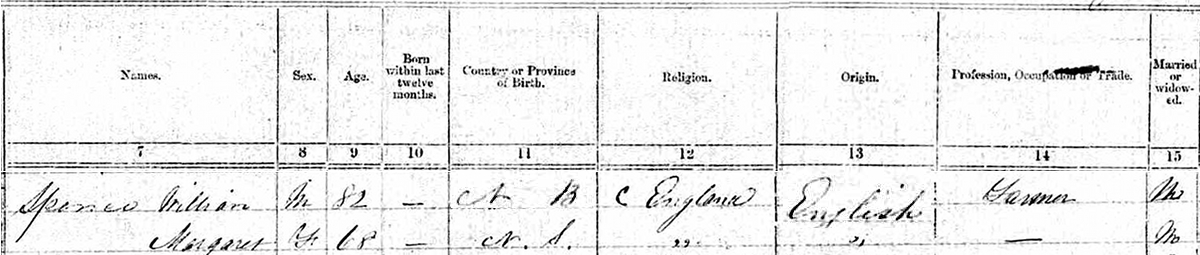 Names. Sex. Age. Born within last twelve months. Country or Province of Birth. Religion. Origin. Profession, Occupation or Trade. Married or widow-ed.
7 8 9 10 11 12 13 14 15
Spence William M 82 — N B C England English Farmer M
Margaret F 68 — N. S. " " — M